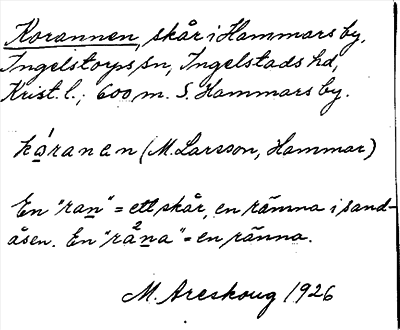 Korannen, skår i Hammars by,
Ingelstorps sn, Ingelstads hd,
Krist. l.; 600 m. S. Hammars by.
kǿranan (M. Larsson, Hammar)
En "ran" = ett skår, en rämna i sand-
åsen. En "råna" = en ränna.
M. Areskoug 1926